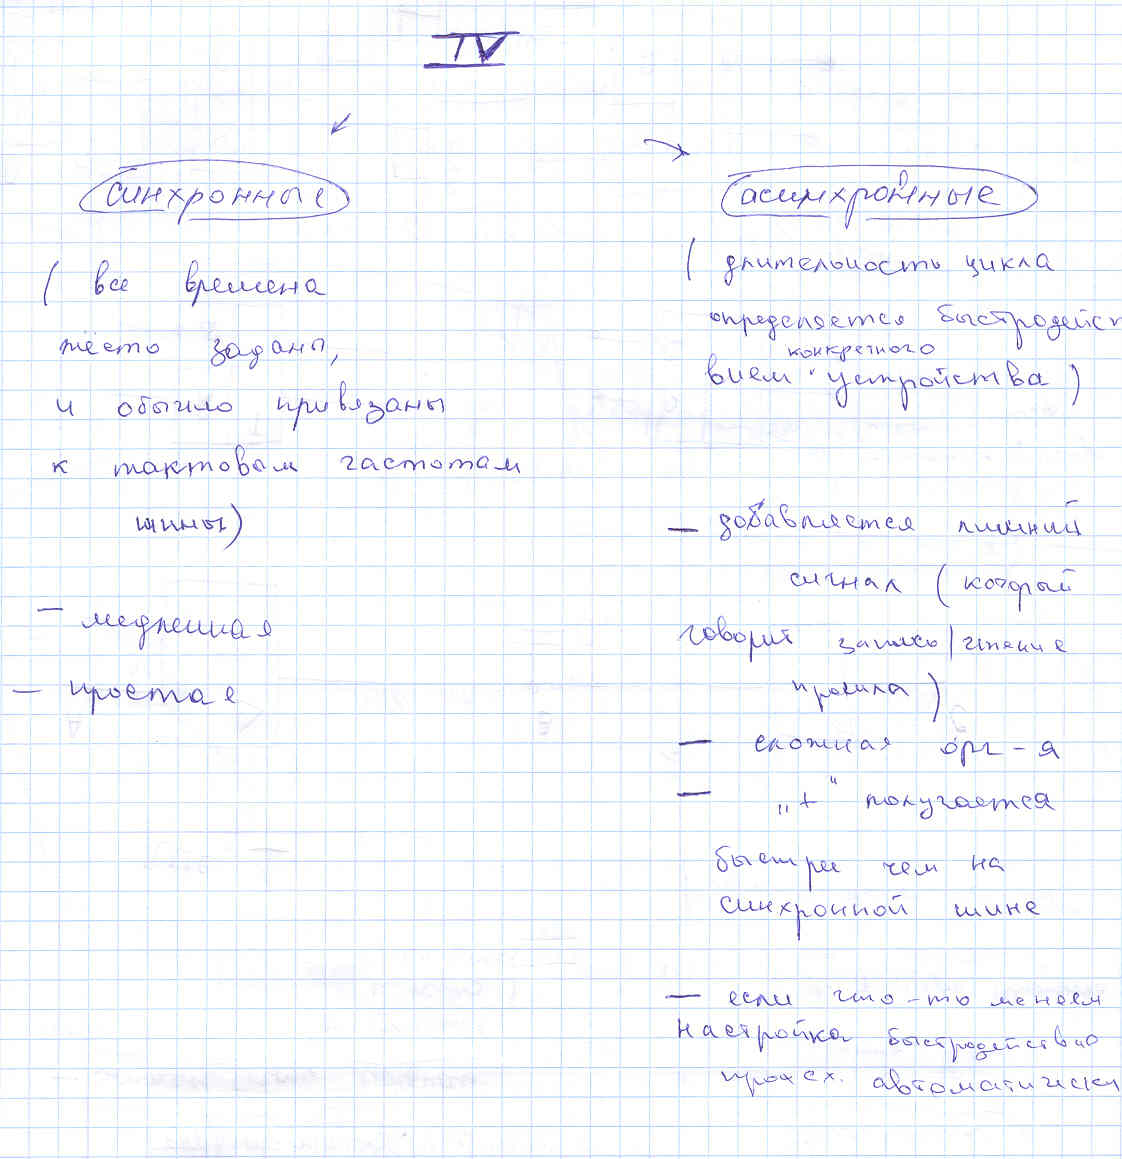 IV
синхронные
( все времена
жёсто заданы,
и обычно привязаны
к тактовым частотам
шины)
— медленная
— простая
асинхронные
( длительность цикла
определяется быстродейст
конкретного
вием устройства )
— добавляется лишний
сигнал ( который
говорит запись/чтение
прошла )
— сложная орг-я
— „+“ получается
быстрее чем на
синхронной шине
— если что-то меняем
настройка быстродействию
происх. автоматически